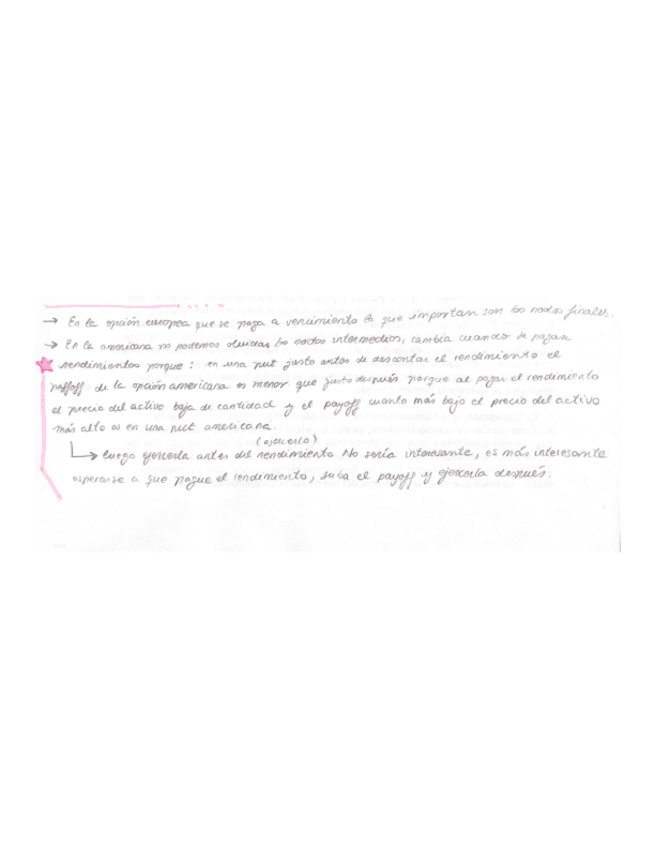 → En la opción europea que se paga a vencimiento lo que importan son los nodos finales.
→ En la americana no podemos olvidar los nodos intermedios, cambia cuando se pagan
rendimientos porque: en una put justo antes de descontar el rendimiento el
payoff de la opción americana es menor que justo después porque al pagar el rendimiento
el precio del activo baja de cantidad y el payoff cuanto más bajo el precio del activo
más alto es en una put americana.
(ejercerla)
↳ luego ejercerla antes del rendimiento No sería interesante, es más interesante
esperarse a que pague el rendimiento, suba el payoff y ejercerla después.